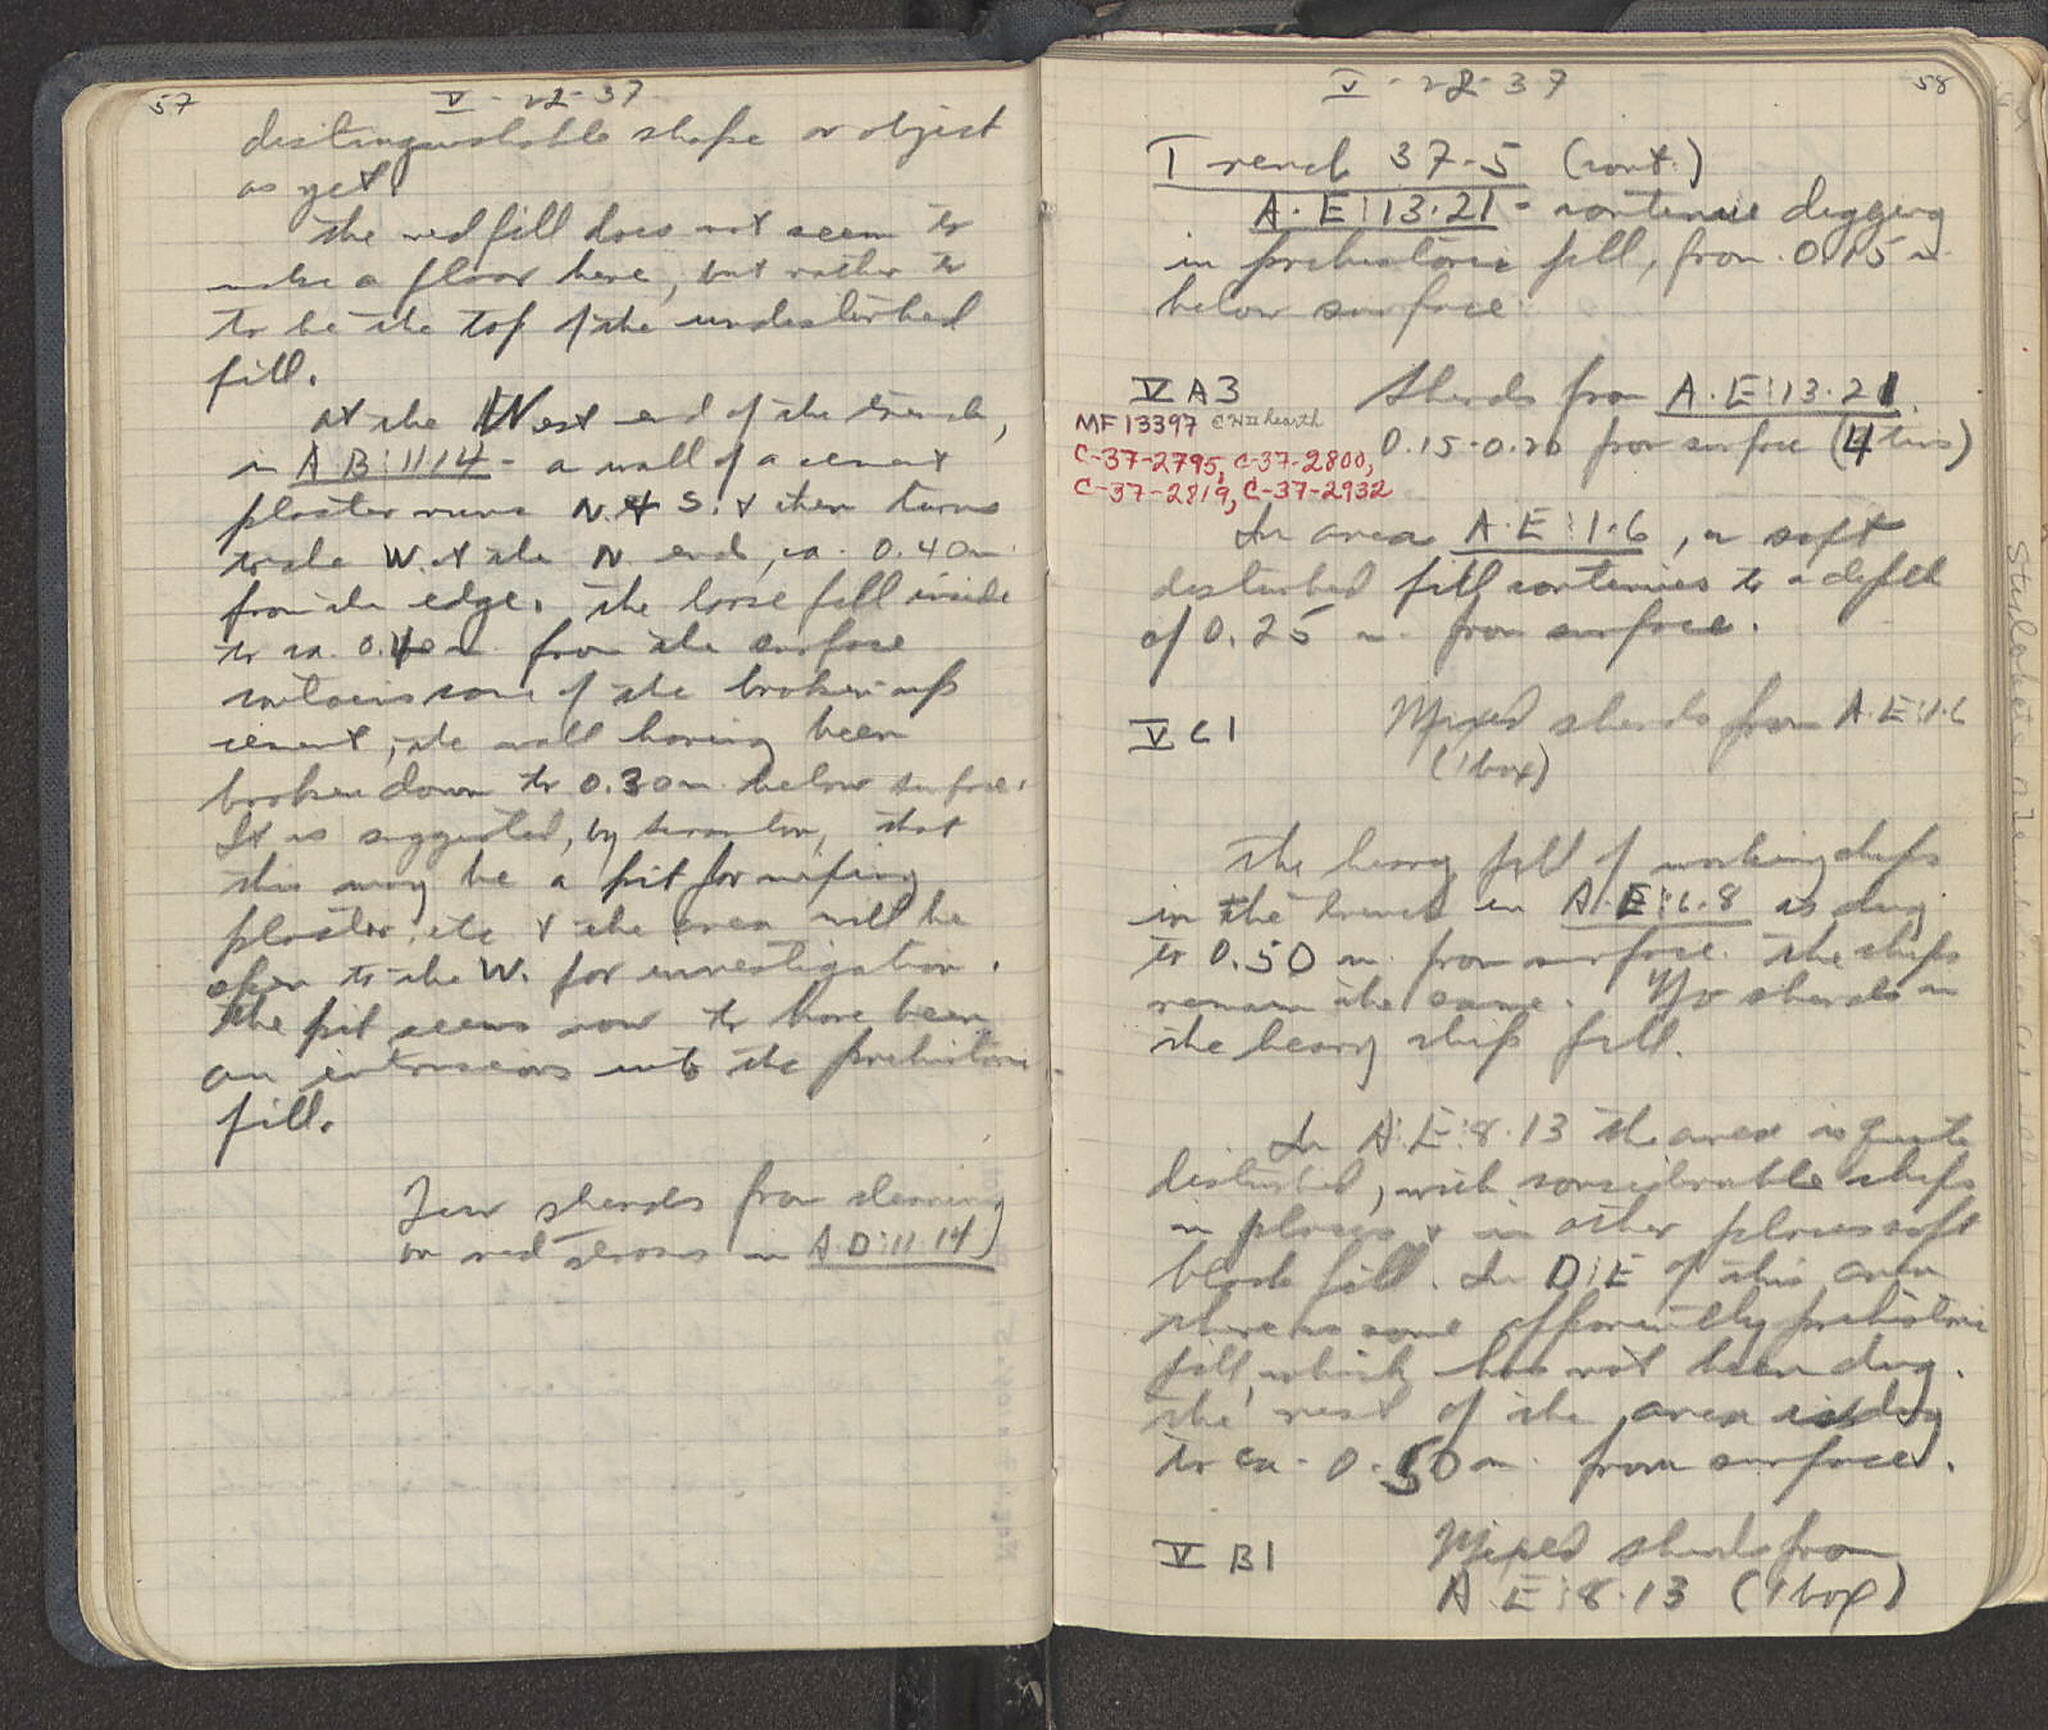 57
V - 22 - 37
distinguishable shape or object
as yet.
The red fill does not seem to
make a floor here, but rather to
to be the top of the undisturbed
fill.
At the West end of the trench,
in A B:11 14 - a wall of a cement
plaster runs N. & S. & then turns
to the W. at the N. end, ca. 0.40 m.
from the edge. The loose fill inside
to ca. 0.40 m. from the surface
contains some of the broken up
cement, the wall having been
broken down to 0.30 m. below surface.
It is suggested, by that
this may be a pit for mixing
plaster, etc & the area will be
open to the W. for investigation.
The pit seems now to have been
an intrusions into the prehistoric
fill.
Few sherds from cleaning
on red in A.D:11.14
V - 22 - 37
58
Trench 37-5 (cont.)
A.E:13.21 - continue digging
in prehistoric fill, from 0.15 m
below surface.
V A3 Sherds from A.E:13.21
MF 13397 CN II hearth 0.15-0.20 from surface (4 tins)
C-37-2795, C-37-2800,
C-37-2819, C-37-2932
In area A.E:1.6, a soft
disturbed fill continues to a depth
of 0.25 m. from surface.
V C1 Mixed sherds from A.E:1.6
(1 box)
The heavy fill of working chips
in the trench in A.E:6.8 is dug
to 0.50 m. from surface. The chips
remain the same. No sherds in
the heavy chip fill.
In A:E:8.13 the area is quite
disturbed, with considerable chips
in places & in other places soft
black fill. In D:E of this area
there is some apparently prehistoric
fill, which has not been dug.
The rest of the area is dug
to ca. 0.50 m. from surface.
V B1 Mixed sherds from
A.E:8.13 (1 box)